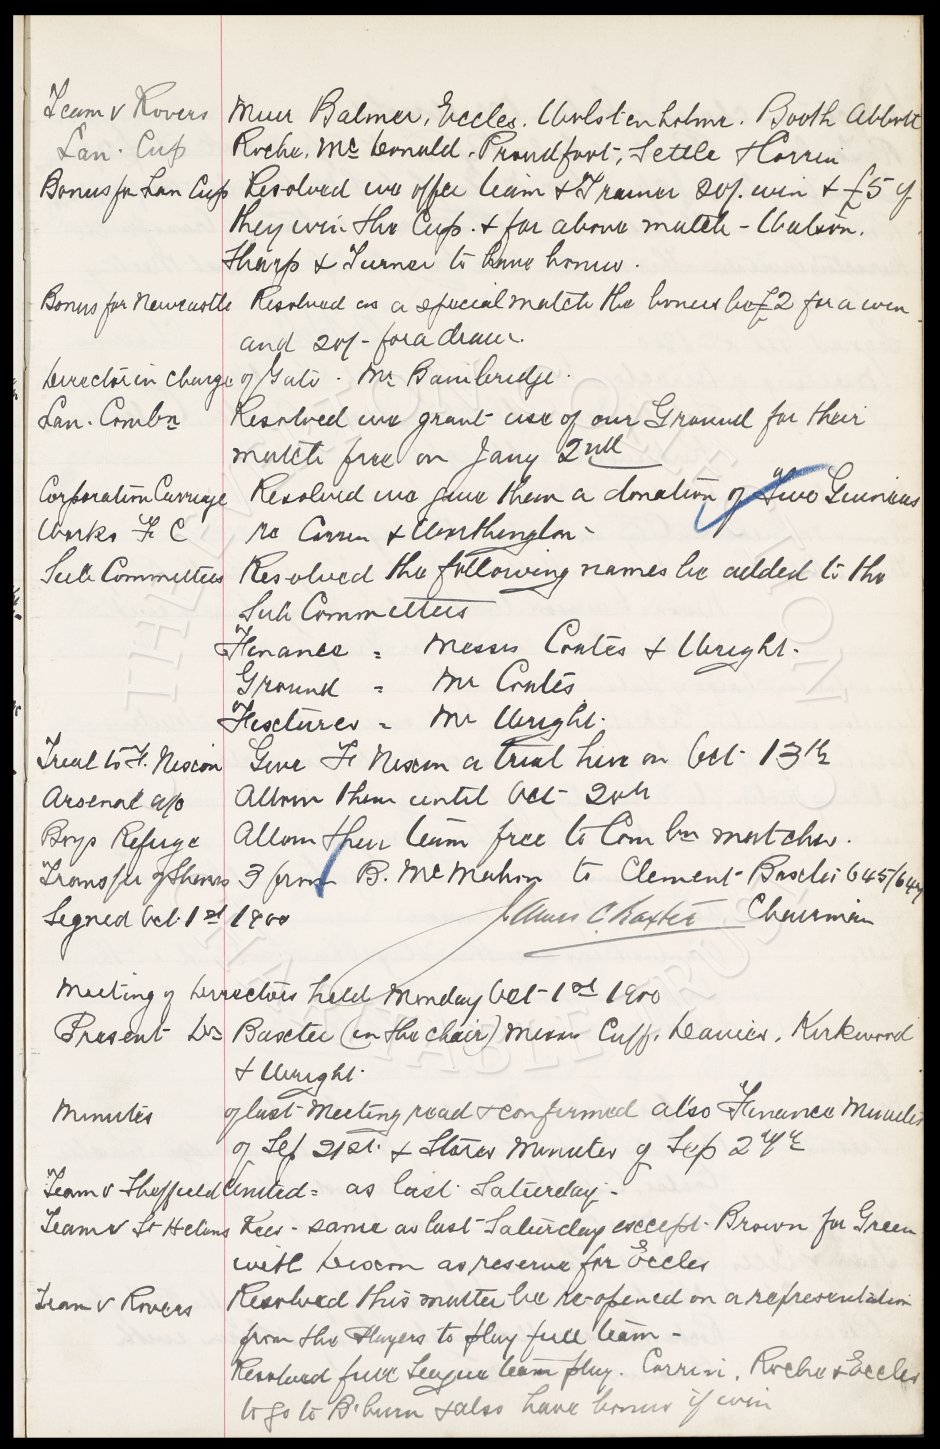 Team v Rovers Muir Balmer, Eccles. Wolstenholme. Booth Abbott
Lan. Cup Roche. Mc Donald. Proudfoot, Settle & Corrin
Bonus for Lan Cup Resolved we offer team & Trainer 20/. win & £5 if
they win the Cup. & for above match - Watson.
Sharp & Turner to have bonus.
Bonus for Newcastle Resolved as a special match the bonus be £2 for a win
and 20/- for a draw.
Director in charge of Gate. Mr Bainbridge.
Lan. Combn Resolved we grant use of our Ground for their
match free on Jany 2nd
Corporation Carriage Resolved we give them a donation of Two Guineas
Works F C re Corrin & Worthington -
Sub Committees Resolved the following names be added to the
Sub Committees
Finance = Messrs Coates & Wright.
Ground = Mr Coates
Fixtures = Mr Wright.
Trial to F. Nixon Give F Nixon a trial here on Oct 13th
Arsenal a/c Allow them until Oct 20th
Boys Refuge Allow their team free to Combn matches.
Transfer of Shares 3 from B. McMahon to Clement Baxter 645/647
Signed Oct. 1st 1900 James C. Baxter Chairman
Meeting of Directors held Monday Oct 1st 1900
Present Dr Baxter (in the chair) Messrs Cuff, Davies, Kirkwood
& Wright.
Minutes of last Meeting read & confirmed also Finance Minutes
of Sep 21st. & Stores Minutes of Sep 24th
Team v Sheffield United = as last Saturday -
Team v St Helens Rec - same as last Saturday except Brown for Green
with Dixon as reserve for Eccles
Team v Rovers Resolved this matter be re-opened on a representation
from the Players to play full team -
Resolved full League team play. Corrin, Roche & Eccles
to go to B'burn & also have bonus if win
THE EVERTON COLLECTION
CHARITABLE TRUST